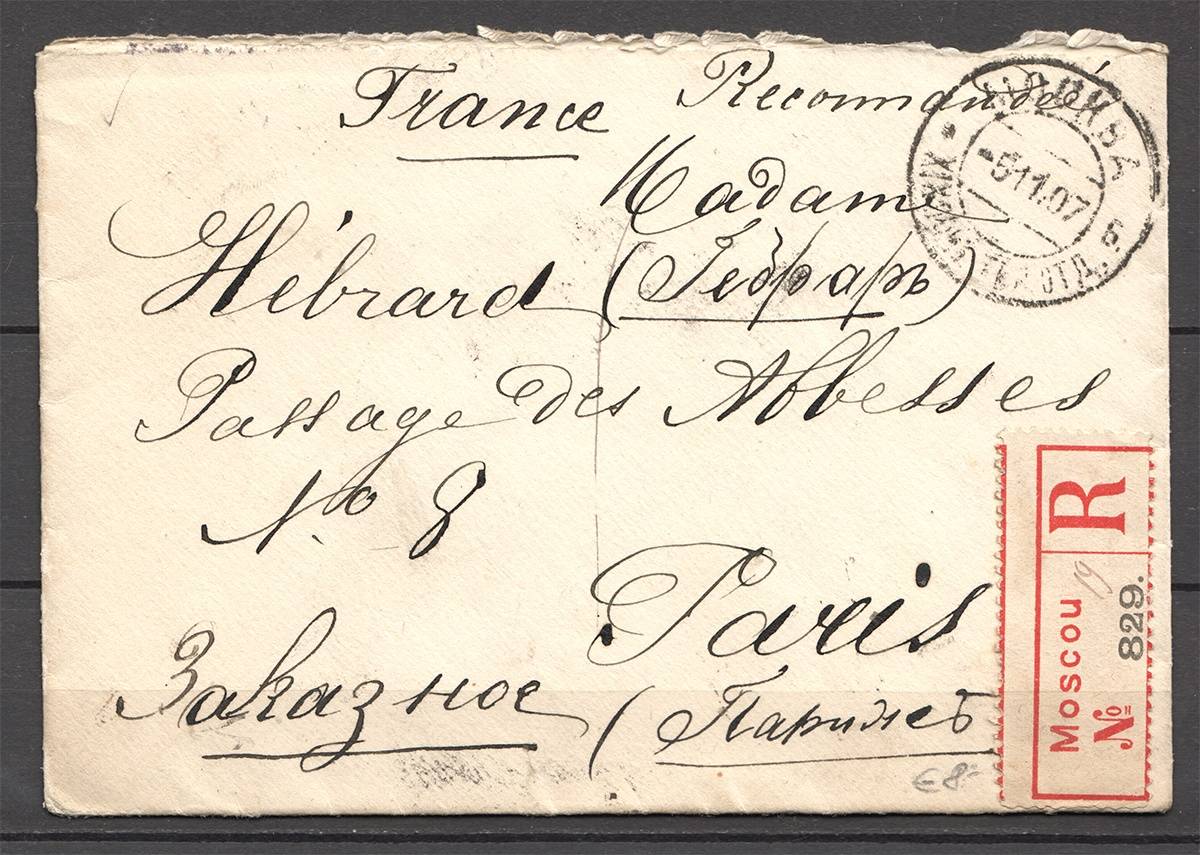 France
Recommandée
Madame
Hébrard (Гебраръ)
Passage des Abbesses
No 8
Paris
Заказное (Парижъ)
МОСКВА
-5 11.07
ОТД. 5
R
Moscou 19
№ 829.
€ 8=